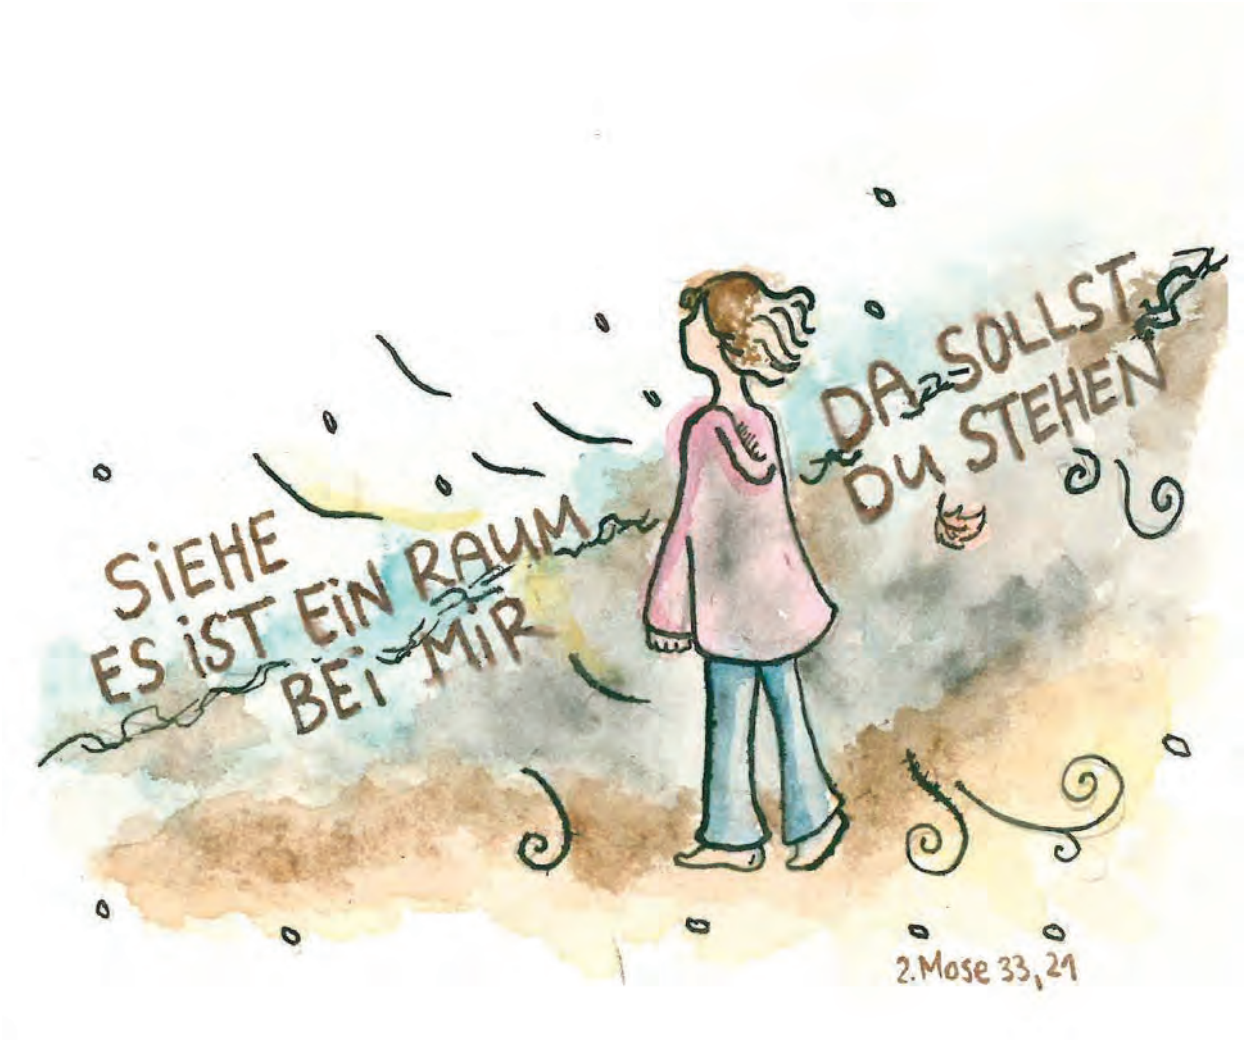 SiEHE
ES iST EiN RAUM
BEi MiR
DA SOLLST
DU STEHEN
2. Mose 33, 21